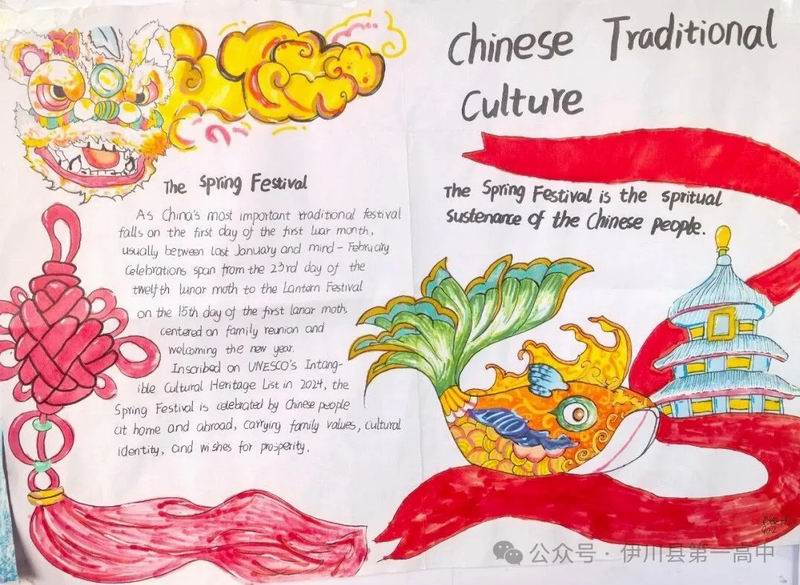 Chinese Traditional
Culture
The Spring Festival is the spritual
sustenance of the Chinese people.
The Spring Festival
As China's most important traditional festival
falls on the first day of the first luar month,
usually between last January and mind-February
Celebrations span from the 23rd day of the
twelfth lunar moth to the Lantern Festival
on the 15th day of the first lanar moth,
centered on family reunion and
welcoming the new year.
Inscribed on UNESCO's Intang-
ible Cultural Heritage List in 2024, the
Spring Festival is celebrated by Chinese people
at home and abroad, carrying family values, cultural
identity, and wishes for prosperity.
公众号·伊川县第一高中